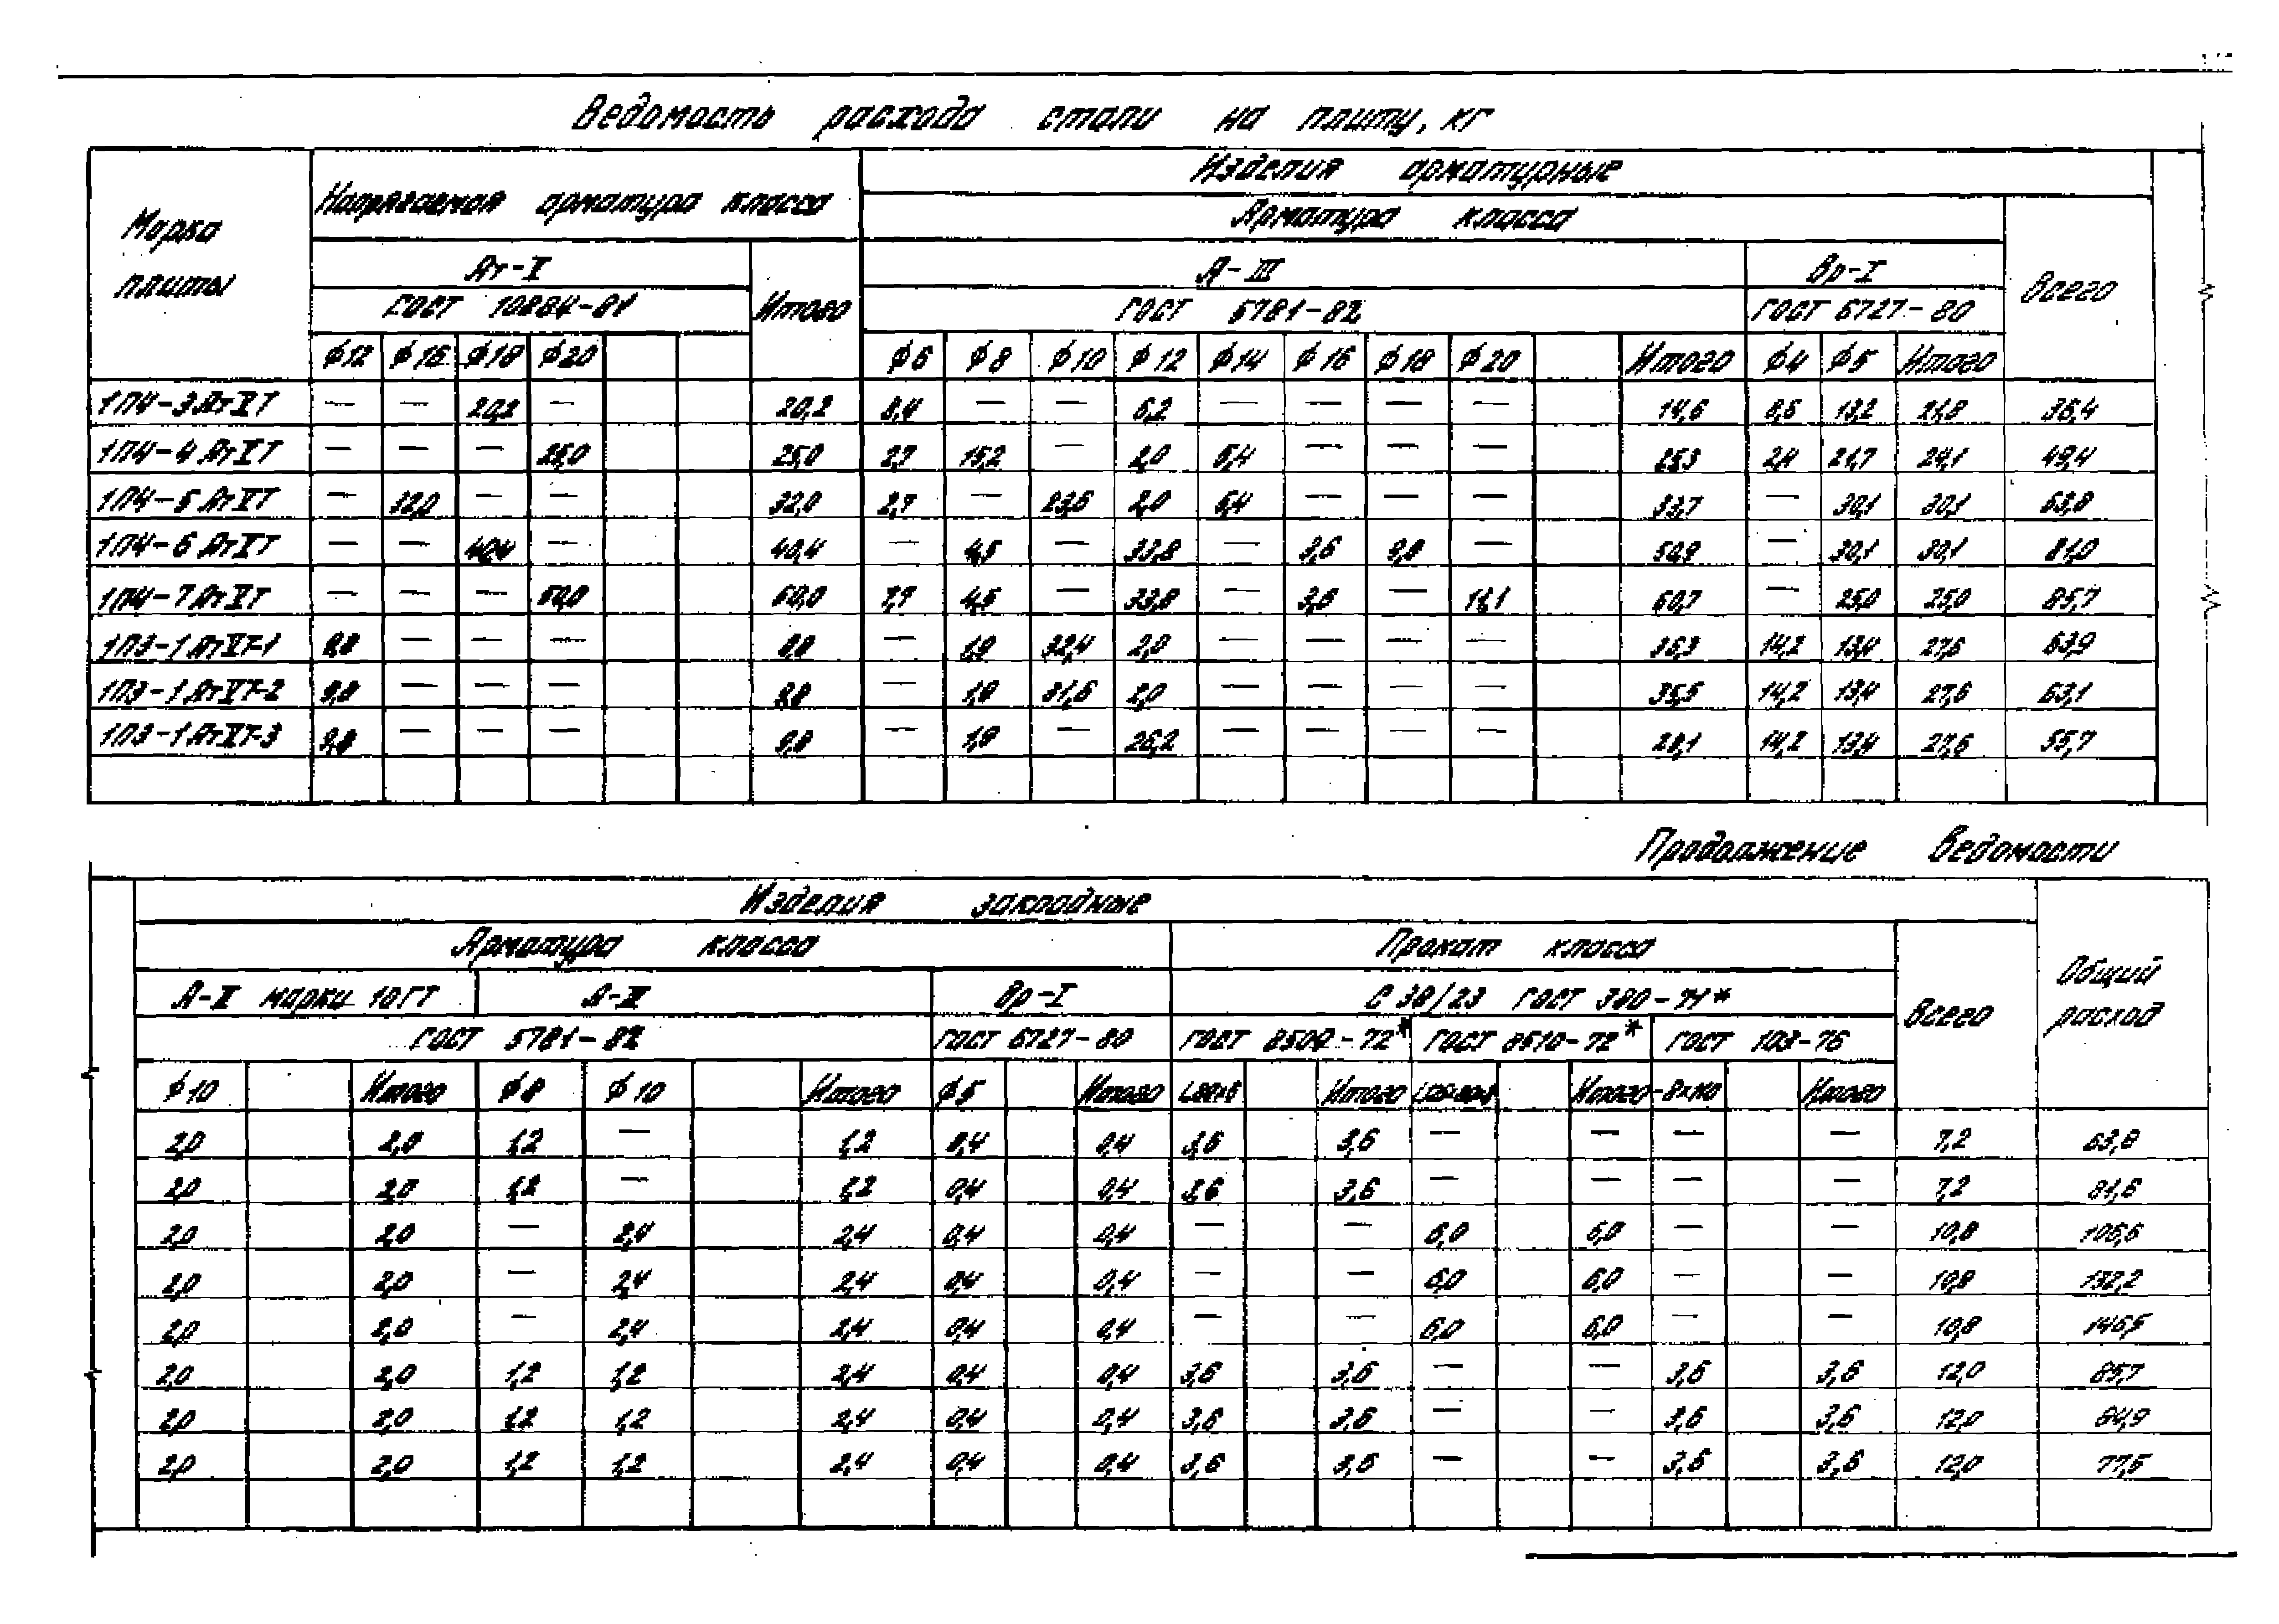 Ведомость расхода стали на плиту, кг
Марка плиты
Напрягаемая арматура класса
Изделия арматурные
Арматура класса
Ат-V
Итого
А-III
Вр-I
Всего
ГОСТ 10884-81
ГОСТ 5781-82
ГОСТ 6727-80
φ12 φ16 φ18 φ20 φ6 φ8 φ10 φ12 φ14 φ16 φ18 φ20 Итого φ4 φ5 Итого
1П4-3АтVТ — — 20,2 — 20,2 8,4 — — 6,2 — — — — 14,6 8,6 13,2 21,8 36,4
1П4-4АтVТ — — — 25,0 25,0 2,7 15,2 — 2,0 5,4 — — — 25,3 2,4 21,7 24,1 49,4
1П4-5АтVТ — 32,0 — — 32,0 2,7 — 23,6 2,0 5,4 — — — 33,7 — 30,1 30,1 63,8
1П4-6АтVТ — — 40,4 — 40,4 — 4,5 — 33,8 — 3,6 9,0 — 50,9 — 30,1 30,1 81,0
1П4-7АтVТ — — — 50,0 50,0 7,7 4,5 — 33,8 — 3,6 — 11,1 60,7 — 25,0 25,0 85,7
1П3-1АтVТ-1 — — — — 1,9 32,4 2,0 — — — — 36,3 14,2 13,4 27,6 63,9
1П3-1АтVТ-2 — — — — 1,9 31,6 2,0 — — — — 35,5 14,2 13,4 27,6 63,1
1П3-1АтVТ-3 — — — — 1,9 — 26,2 — — — — 28,1 14,2 13,4 27,6 55,7
Продолжение ведомости
Изделия закладные
Общий расход
Арматура класса
Прокат класса
Всего
А-II марки 10ГТ
А-III
Вр-I
С 38/23 ГОСТ 380-71*
ГОСТ 5781-82
ГОСТ 6727-80
ГОСТ 8509-72*
ГОСТ 8510-72*
ГОСТ 103-76
φ10 Итого φ8 φ10 Итого φ5 Итого Итого Итого Итого
2,0 2,0 1,2 — 1,2 0,4 0,4 3,6 3,6 — — — — 7,2 63,8
2,0 2,0 1,2 — 1,2 0,4 0,4 3,6 3,6 — — — — 7,2 81,6
2,0 2,0 — 2,4 2,4 0,4 0,4 — — 6,0 6,0 — — 10,8 106,6
2,0 2,0 — 2,4 2,4 0,4 0,4 — — 6,0 6,0 — — 10,8 132,2
2,0 2,0 — 2,4 2,4 0,4 0,4 — — 6,0 6,0 — — 10,8 146,5
2,0 2,0 1,2 1,2 2,4 0,4 0,4 3,6 3,6 — — 3,6 3,6 12,0 85,7
2,0 2,0 1,2 1,2 2,4 0,4 0,4 3,6 3,6 — — 3,6 3,6 12,0 84,9
2,0 2,0 1,2 1,2 2,4 0,4 0,4 3,6 3,6 — — 3,6 3,6 12,0 77,5